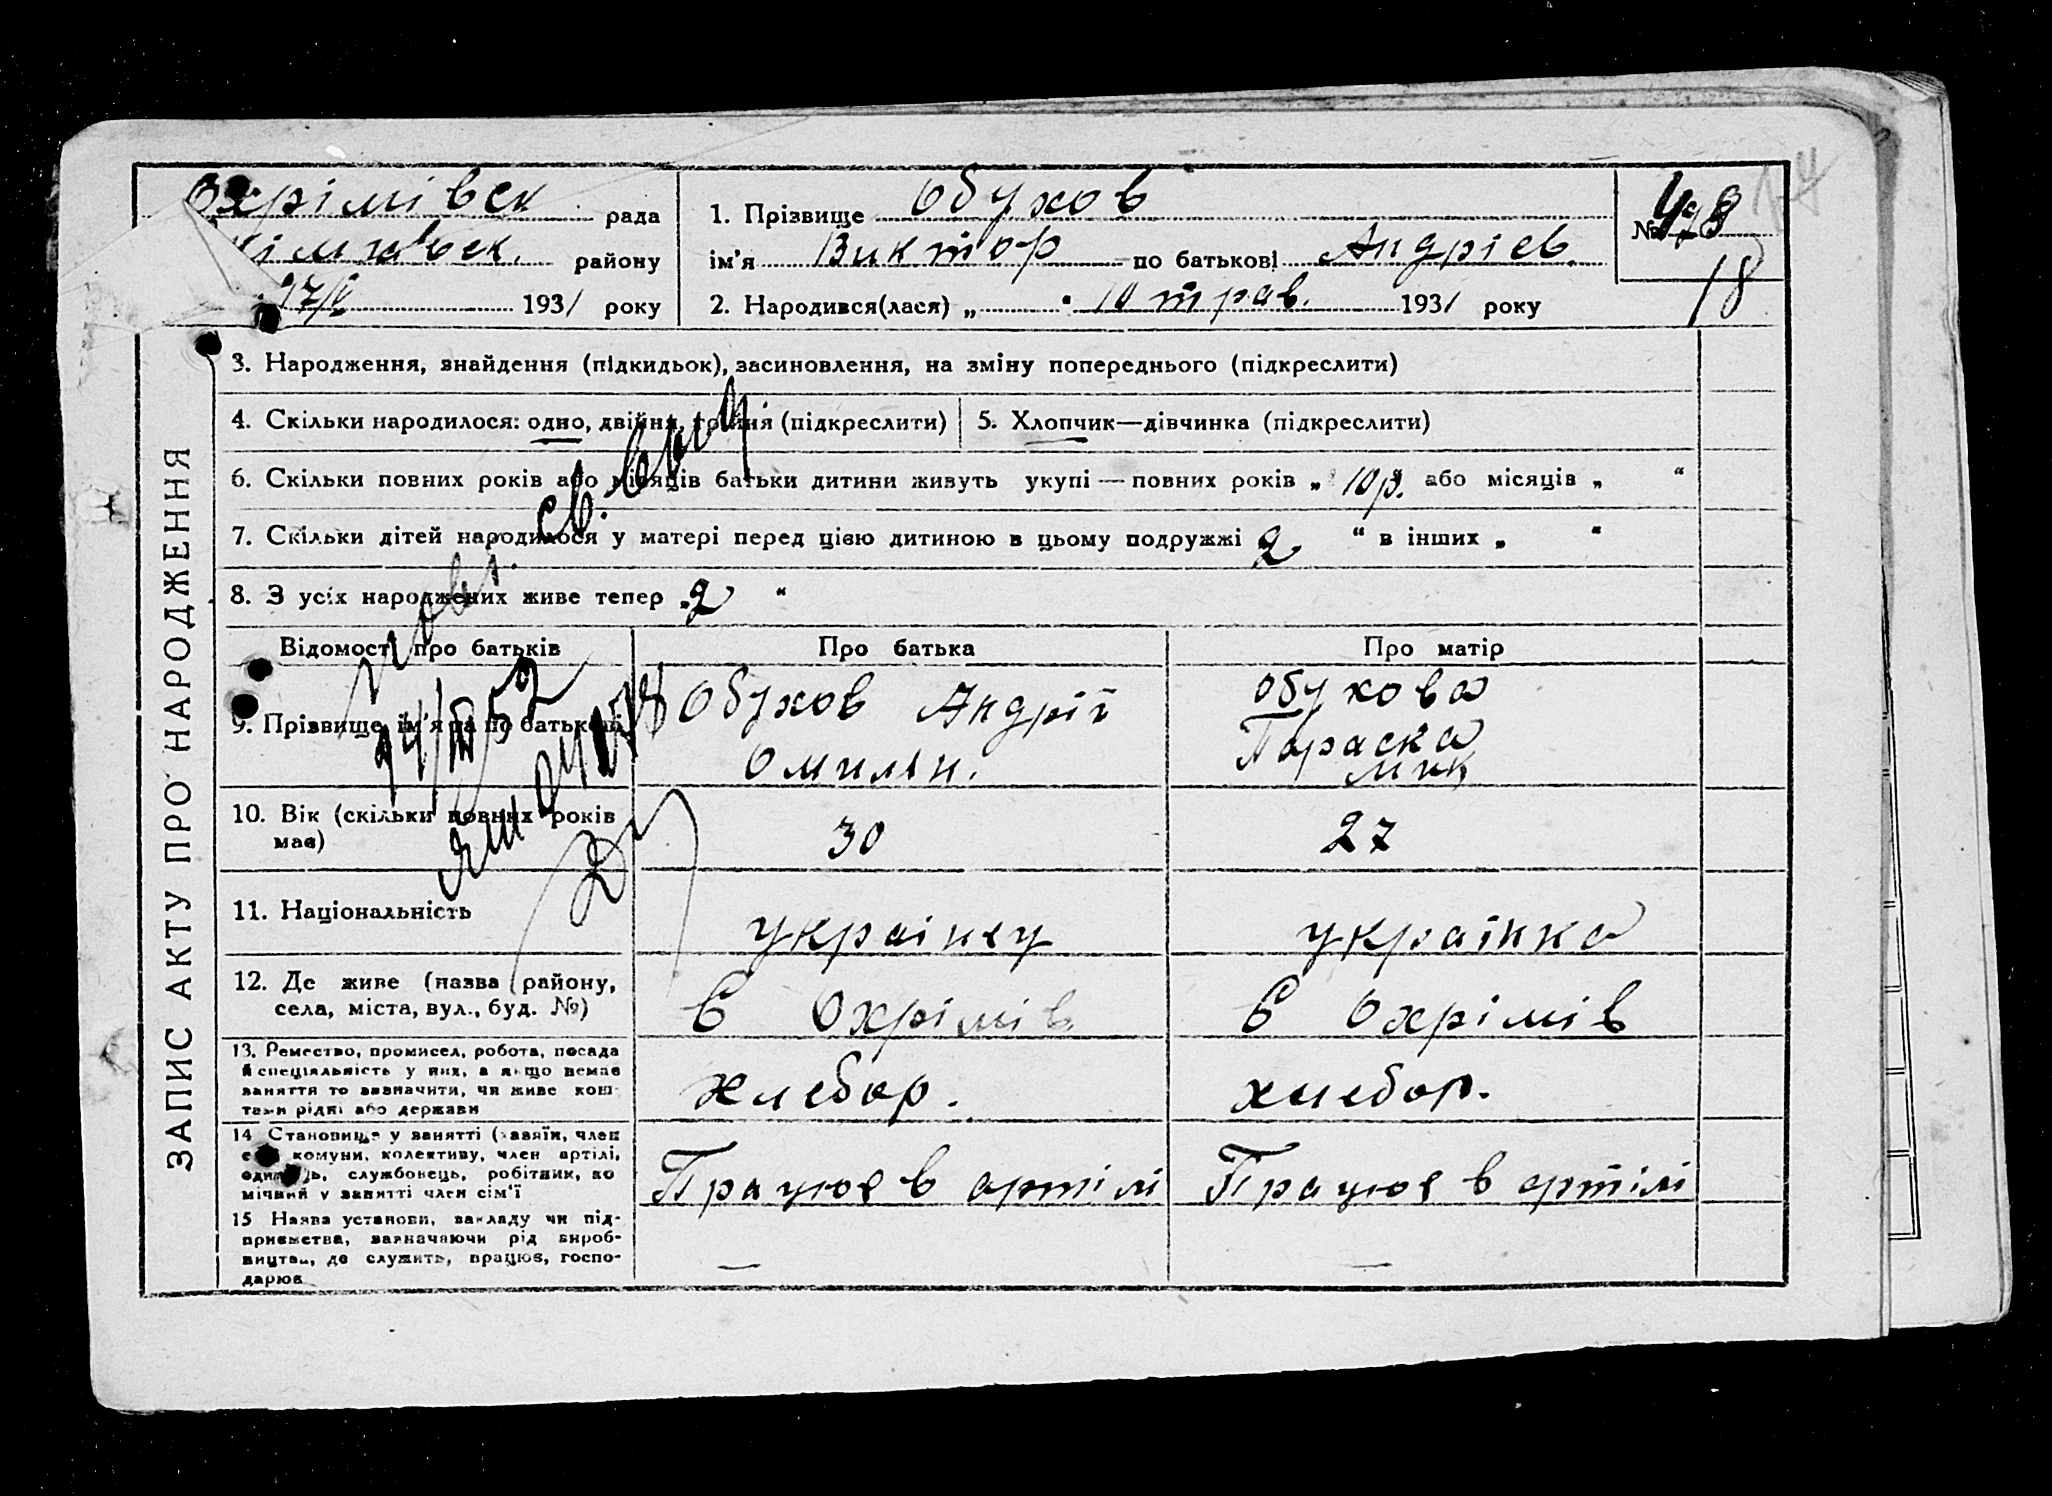 Охрімівск рада
кімгавск. району
17/V 1931 року
1. Прізвище Обухов
ім'я Виктор по батькові Андріев.
2. Народився(лася) „ 10 трав. 1931 року
№ 478
18
ЗАПИС АКТУ ПРО НАРОДЖЕННЯ
3. Народження, знайдення (підкидьок), засиновлення, на зміну попереднього (підкреслити)
4. Скільки народилося: одно, двійня, тройня (підкреслити)
5. Хлопчик—дівчинка (підкреслити)
6. Скільки повних років або місяців батьки дитини живуть укупі — повних років „ 10 р. або місяців „ “
7. Скільки дітей народилося у матері перед цією дитиною в цьому подружжі 2 “ в інших „ “
8. З усіх народжених живе тепер „2 “
Повт. св.
Відомості про батьків
Про батька
Про матір
9. Прізвище, ім'я та по батькові
Обухов Андрій
Омильн.
Обухова
Параска
Мик
10. Вік (скільки повних років
має)
30
27
11. Національність
українец
українка
12. Де живе (назва району,
села, міста, вул., буд. №)
С Охрімів
С Охрімів
13. Ремество, промисел, робота, посада
й спеціяльність у них, а якщо немає
заняття то зазначити, чи живе кош-
тами рідні або держави
хлебор.
хлебор.
14 Становище у занятті (хазяїн, член
комуни, колективу, член артілі,
службовець, робітник, по
мічний у занятті член сім'ї
Працює в артілі
Працює в артілі
15 Назва установи, закладу чи під-
приємства, зазначаючи рід вироб-
ництва, де служить, працює, госпо-
дарює
—
—